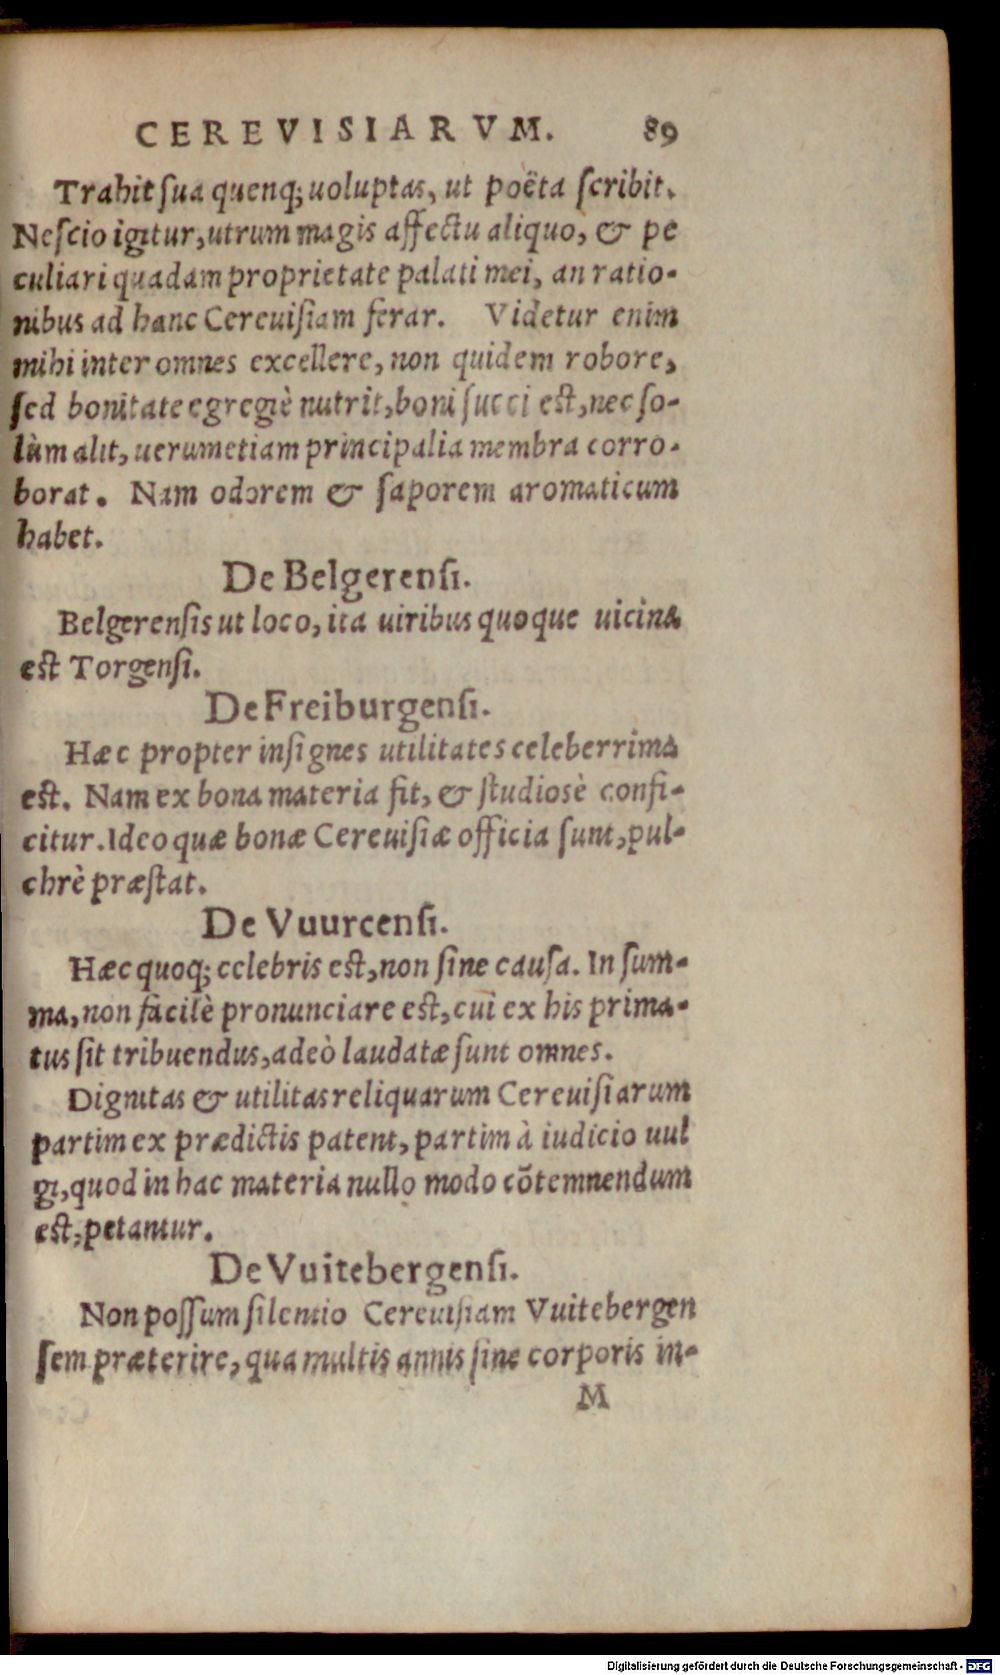 CEREVISIARVM. 89
Trahit sua quenq; uoluptas, ut poëta scribit.
Nescio igitur, utrum magis affectu aliquo, & pe
culiari quadam proprietate palati mei, an ratio-
nibus ad hanc Cereuisiam ferar. Videtur enim
mihi inter omnes excellere, non quidem robore,
sed bonitate egregiè nutrit, boni succi est, nec so-
lùm alit, uerumetiam principalia membra corro-
borat. Nam odorem & saporem aromaticum
habet.
De Belgerensi.
Belgerensis ut loco, ita uiribus quoque uicina
est Torgensi.
De Freiburgensi.
Hæc propter insignes utilitates celeberrima
est. Nam ex bona materia fit, & studiosè confi-
citur. Ideo quæ bonæ Cereuisiæ officia sunt, pul-
chrè præstat.
De Vuurcensi.
Hæc quoq; celebris est, non sine causa. In sum-
ma, non facilè pronunciare est, cui ex his prima-
tus sit tribuendus, adeò laudatæ sunt omnes.
Dignitas & utilitas reliquarum Cereuisiarum
partim ex prædictis patent, partim à iudicio uul
gi, quod in hac materia nullo modo cõtemnendum
est, petantur.
De Vuitebergensi.
Non possum silentio Cereuisiam Vuitebergen
sem præterire, qua multis annis sine corporis in-
M
Digitalisierung gefördert durch die Deutsche Forschungsgemeinschaft - DFG